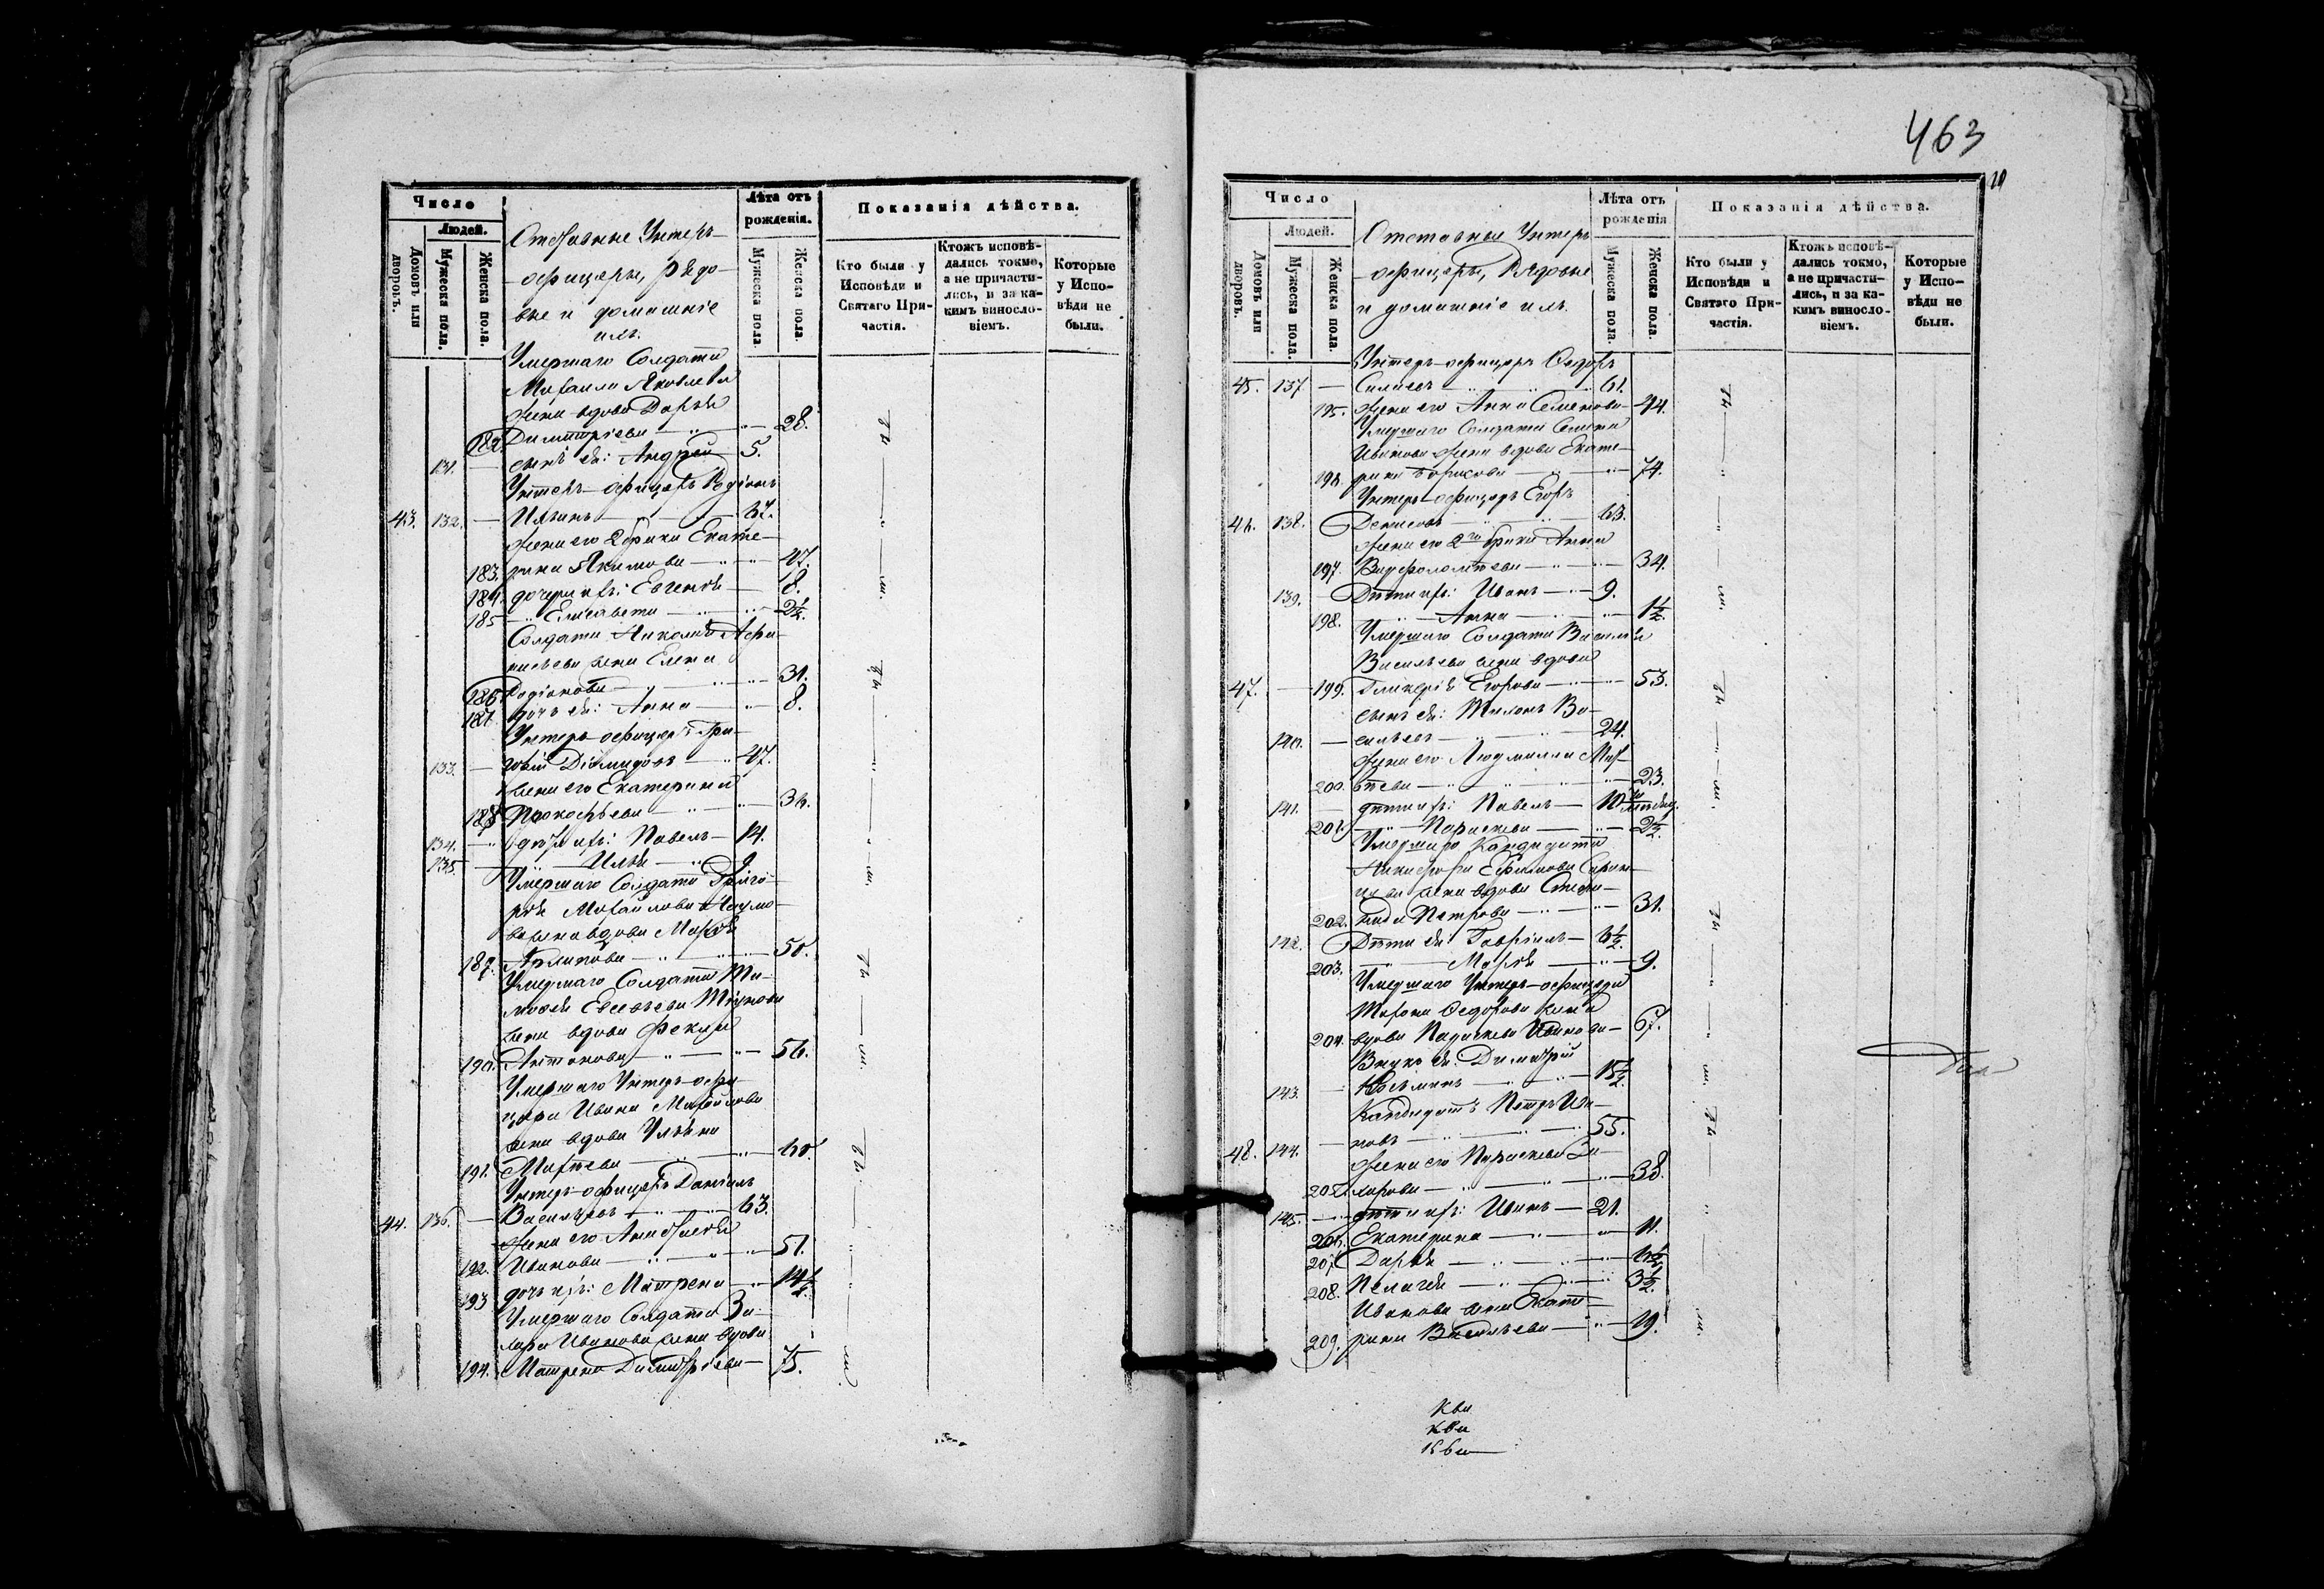 463
Число
Людей.
Домовъ или дворовъ.
Мужеска пола.
Женска пола.
Отставные Унтеръ-
офицеры, рядо-
вые и домашніе
ихъ.
Лѣта отъ рожденія.
Мужеска пола.
Женска пола.
Показанія дѣйства.
Кто были у Исповѣди и Святаго Причастія.
Ктожъ исповѣ-
дались токмо,
а не причасти-
лись, и за ка-
кимъ виносло-
віемъ.
Которые
у Испо-
вѣди не
были.
Умершаго Солдата
Михаила Яковлева
жена вдова Дарья
182. Димитріева 28.
131. сынъ ея: Андрей 5.
Унтеръ-офицеръ Родіонъ
43. 132. Ильинъ 67.
жена его 2 брака Екате-
183. рина Якимова 47.
184. дочери ихъ: Евгенія 18.
185 Елисавета 2½.
Солдата Николая Афа-
насьева жена Елена
186. Родіонова 31.
187. дочь ея: Анна 8.
Унтеръ-офицеръ Гри-
133. горій Діомидовъ 47.
жена его Екатерина
188. Прокофьева 36.
134. дѣти ихъ: Павелъ 14.
135. Илья 9.
Умершаго Солдата Григо-
рія Михайлова Наумо-
ва жена вдова Марья
189. Архипова 50.
Умершаго Солдата Ти-
мофея Евсевьева
жена вдова Фекла
190. Антонова 56.
Умершаго Унтеръ-офи-
цера Ивана Михайлова
жена вдова Ульяна
191. Матвеева 60.
Унтеръ-офицеръ Даніилъ
44. 136. Васильевъ 63.
жена его Анастасія
192. Иванова 51.
193 дочь ихъ: Матрена 14½.
Умершаго Солдата За-
хара Иванова жена вдова
194. Матрена Димитріева 75.
Число
Людей.
Домовъ или дворовъ.
Мужеска пола.
Женска пола.
Отставные Унтеръ
офицеры, Рядовые
и домашніе ихъ.
Лѣта отъ рожденія
Мужеска пола.
Женска пола.
Показанія дѣйства.
Кто были у Исповѣди и Святаго Причастія.
Ктожъ исповѣ-
дались токмо,
а не причасти-
лись, и за ка-
кимъ винословіемъ.
Которые
у Испо-
вѣди не
были.
Унтеръ-офицеръ Ѳедоръ
45. 137. 61.
195. жена его Анна Семенова 44.
Умершаго Солдата Семена
Иванова жена вдова Екате-
196. рина Борисова 74.
Унтеръ-офицеръ Егоръ
46. 138. Денисовъ 63.
жена его 2го брака Анна
197. Варфоломѣева 34.
139. Дѣти ихъ: Иванъ 9.
198. Анна 1½.
Умершаго Солдата Василія
Васильева жена вдова
47. 199. Гликерія Егорова 53.
сынъ ея: Тихонъ Ва-
140. сильевъ 24.
жена его Людмилла Мат-
200. вѣева 23.
141. дѣти ихъ: Павелъ 10
201. Параскева 2½.
Умершаго Кандидата
Никифора Ефимова
жена вдова Степа-
202. нида Петрова 31.
142. Дѣти ея: Гавріилъ 6½.
203. Марья 9.
Умершаго Унтеръ-офицера
Ѳедорова жена
204. вдова Параскева Иванова 67.
Внукъ ея: Димитрій
143. Козьминъ 15½.
Кандидатъ Петръ Ива-
48. 144. новъ 55.
жена его Параскева За-
205. харова 38.
145. дѣти ихъ: Иванъ 21.
206. Екатерина 11.
207. Дарья 6½.
208. Пелагея 3½.
Иванова жена Екате-
209. рина Васильева 19.